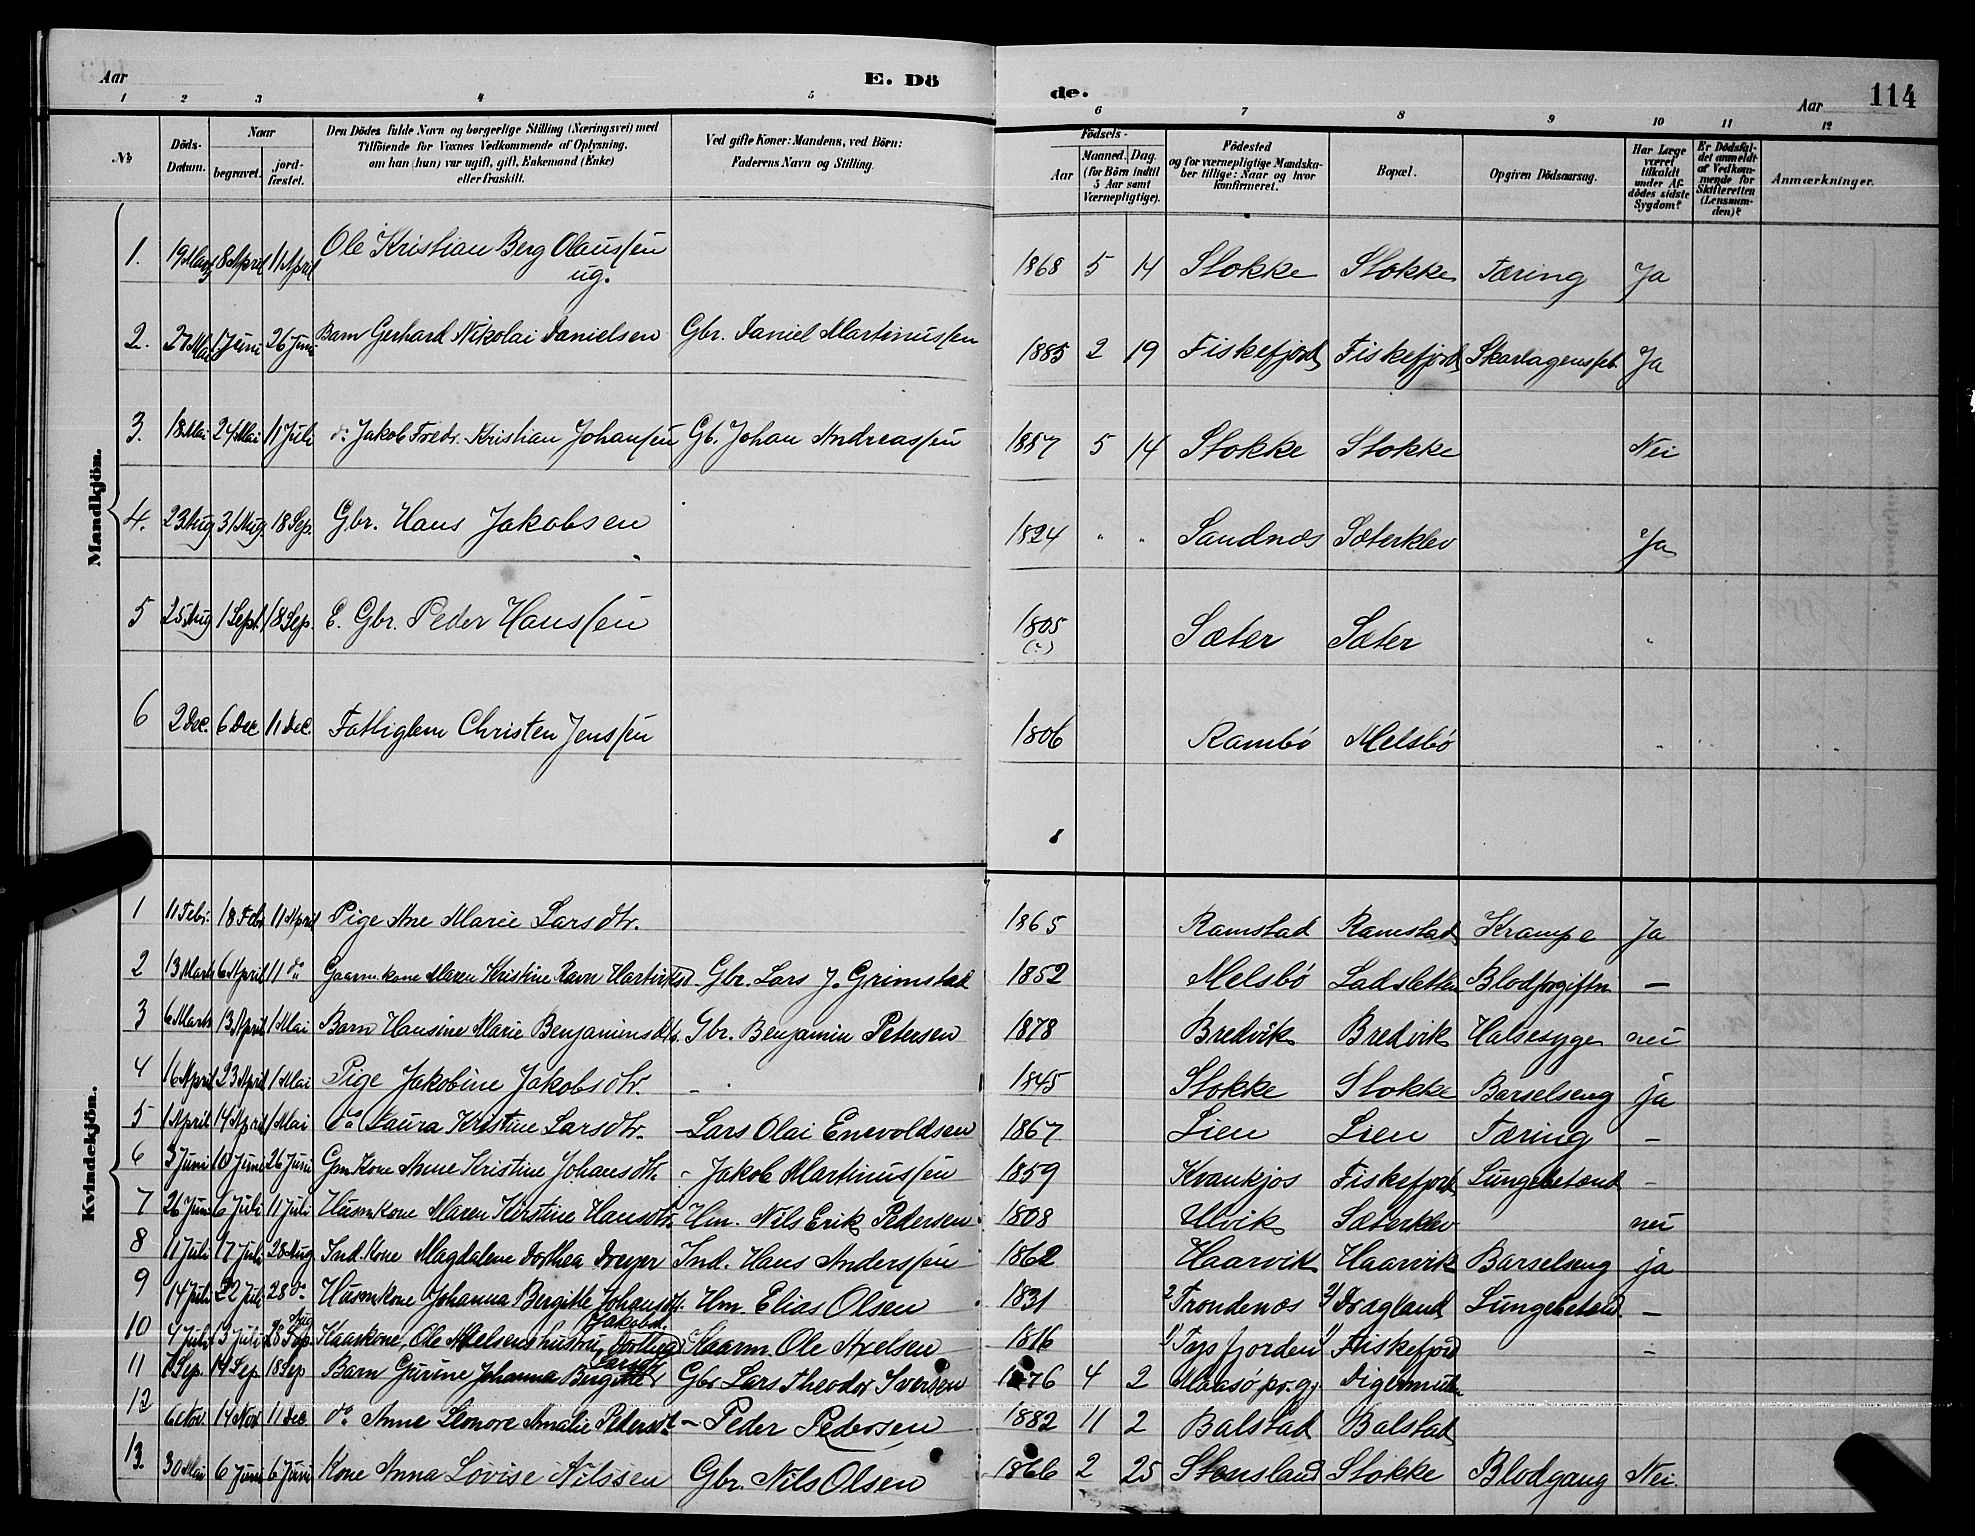 Aar E. Dö de. Aar 114
1 2 3 4 5 6 7 8 9 10 11 12
No
Döds-Datum.
Naar
begravet.
jord-fæstet.
Den Dödes fulde Navn og borgerlige Stilling (Næringsvei) med
Tilföiende for Voxnes Vedkommende af Oplysning,
om han (hun) var ugift, gift, Enkemand (Enke)
eller fraskilt.
Ved gifte Koner: Mandens, ved Börn:
Faderens Navn og Stilling.
Födsels-
Aar
Maaned. Dag.
(for Börn indtil
5 Aar samt
Værnepligtige).
Födested
og for værnepligtige Mandska-
ber tillige: Naar og hvor
konfirmeret.
Bopæl.
Opgiven Dödsaarsag.
Har Læge
været
tilkaldt
under Af-
dödes sidste
Sygdom?
Er Dödsfal-
det anmeldt
af Vedkom-
mende for
Skifteretten
(Lensman-
den)?
Anmærkninger.
Mandkjön.
1. 19 8 April 11 April Ole Kristian Berg Olaussen 1868 5 14 Stokke Stokke Tæring Ja
ug.
2. 27 Mai 1 Juni 26 Juni Barn Gerhard Nikolai Danielsen Gbr. Daniel Martinussen 1885 2 19 Fiskefjord Fiskefjord Skarlagensfeb. Ja
3. 18 Mai 24 Mai 11 Juli do Jakob Fredr. Kristian Johansen Gb. Johan Andreassen 1887 5 14 Stokke Stokke Nei
4. 23 Aug 31 Aug. 18 Sep. Gbr. Hans Jakobsen 1824 " " Sandnæs Sæterklev Ja
5 25 Aug 1 Sept. 18 Sep. E. Gbr. Peder Hanssen 1805 Sæter Sæter "
(?)
6 2 Dec. 6 Dec 11 Dec. Fattiglem Christen Jenssen 1806 Rambö Melsbö " "
Kvindekjön.
1 11 Febr. 18 Feb 11 April Pige Ane Marie Larsdtr. 1865 Ramstad Ramstad Krampe Ja
2 13 Marts 6 April 11 do Gaarmkone Maren Kristine Ravn Gbr. Lars J. Grimstad 1852 Melsbö Ladsletten Blodforgiftn —
3 6 Marts 13 April 1 Mai Barn Hansine Marie Benjaminsdtr. Gbr. Benjamin Petersen 1878 Bredvik Bredvik Halsesyge nei
4 16 April 23 April 1 Mai Pige Jakobine Jakobsdtr. - 1845 Stokke Stokke Barselseng ja
5 1 April 14 April 1 Mai do Laura Kristine Larsdtr. - Lars Olai Enevoldsen 1867 Lien Lien Tæring -
6 3 Juni 10 Juni 26 Juni Gm Kone Anne Kristine Johansdtr. - Jakob Martinussen 1859 Kvankjos Fiskefjord Lungebetænd -
7 26 Juni 6 Juli 11 Juli Husmkone Maren Kirstine Hansdtr. Hm. Nils Erik Pedersen 1808 Ulvik Sæterklev nei
8 11 Juli 17 Juli 28 Aug Ind. Kone Magdalene Dorthea Dreyer Ind. Hans Anderssen 1862 Haarvik Haarvik Barselseng ja
9 14 Juli 22 Juli 28 do Husmkone Johanna Bergitte Johansdtr. Hm. Elias Olsen 1831 2) Trondenæs 2) Dragland Lungebetænd —
10 4 Juli 13 Juli 28 Aug Kaarkone, Ole Axelsens hustru Dorthea Jakobd. Kaarm. Ole Axelsen 1816 1) Tysfjorden 1) Fiskefjord -
11 7 Sep. 14 Sep. 18 Sep Barn Gurine Johanna Bergitte Larsdtr Gbr Lars Theodor Iversen 1876 4 2 Maasö pr.gj. Digermulen
12 6 Nov. 14 Nov. 11 Dec do Anne Leonore Amalie Pedersdt - Peder Pedersen 1882 11 2 Balstad Balstad
13. 30 Mai 6 Juni 6 Juni Kone Anna Lovise Nilssen Gbr. Nils Olsen 1866 2 25 Stensland Stokke Blodgang Nei